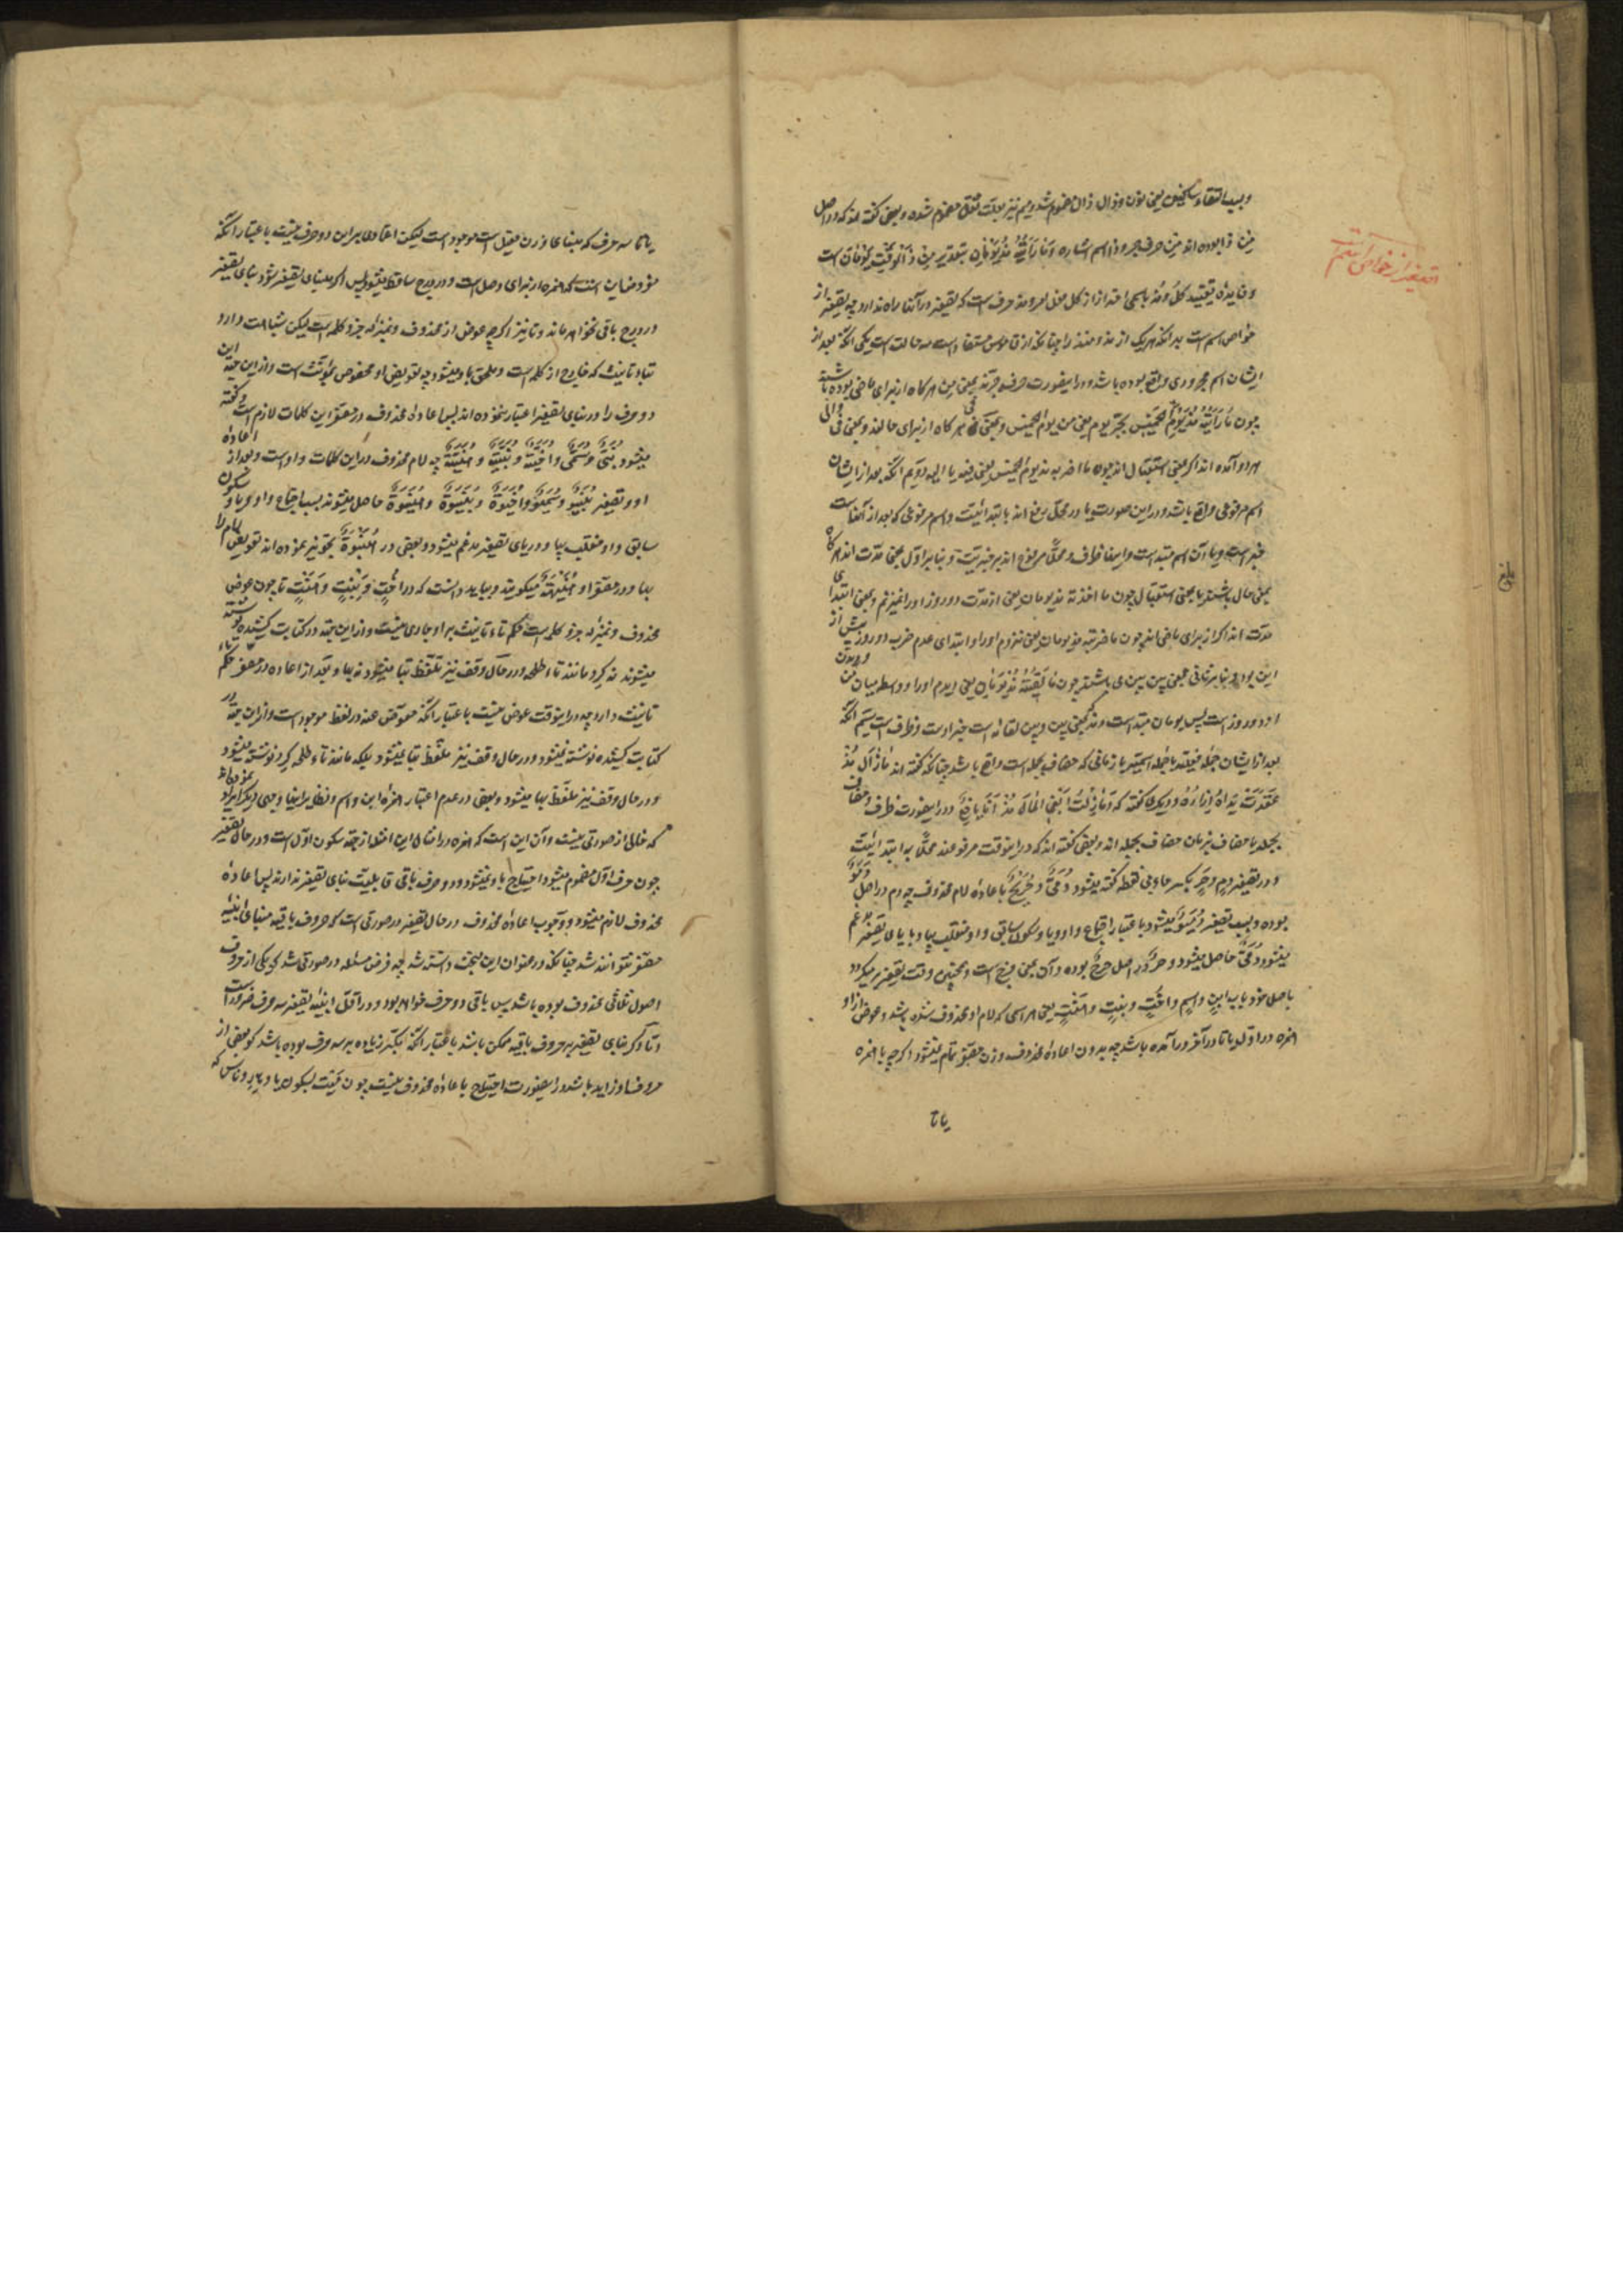 و بسبب التقاء ساکنین یعنی نون و ذال ذال مضموم شد و میم نیز بعلت ثقل مضموم شده و بعضی گفته اند که در اصل
مِن ذا بوده اند مِن حرف جر و ذا اسم اشاره و ما رَأَیتُهُ مُذ یَومانِ بتقدیر مِن ذا الوقتِ یومان است
و فایده تقیید کل و مذ باسمی احتراز از کل فعل امر و مذ حرف است که تصغیر در آنها راه ندارد چه تصغیر از
خواص اسم است بدانکه هریک از مذ و منذ را چنانکه از قاموس مستفاد است سه حالت است یکی آنکه بعد از
ایشان اسم مجروری واقع بوده باشد و در اینصورت حرف جرند بمعنی مِن هرگاه از برای ماضی بوده باشند
چون ما رَأَیتُهُ مُذ یَومِ الخَمیسِ بجر یوم یعنی من یوم الخمیس و بمعنی فی هرگاه از برای حالند و بمعنی فی و الی
هر دو آمده اند اگر بمعنی استقبال اند چون ما اضربه مذ یوم الخمیس یعنی فیه یا الیه دویم آنکه بعد از ایشان
اسم مرفوعی واقع باشد و در این صورت یا در محل رفع اند بابتدائیت و اسم مرفوعی که بعد از آنهاست
خبر است و یا آن اسم مبتداست و اینها ظرف و محلا مرفوع اند بر خبریت و بنا بر اول بمعنی مدت اند هرگاه
بمعنی حال باشند یا بمعنی استقبال چون ما اضربه مذ یومان یعنی از مدت دو روز او را نمیزنم و بمعنی ابتدای
مدت اند اگر از برای ماضی اند چون ما ضربته مذ یومان یعنی نزدم او را و ابتدای عدم ضرب دو روز پیش از
این بود و بنا بر ثانی بمعنی بین بین می باشند چون ما لَقِیتُهُ مُذ یَومانِ یعنی ندیدم او را و واسطه میان من و دیدن
او دو روز است پس یومان مبتداست و مذ بمعنی بین و بین لقائه است خبر اوست و ظرف است سیم آنکه
بعد از ایشان جمله فعلیه یا جمله اسمیه یا زمانی که مضاف بجمله است واقع باشد چنانکه گفته اند ما زال مُذ
عَقَدَت یَداهُ إزارَهُ و دیگری گفته که وَ ما زِلتُ أبغی المالَ مُذ أنا یافِعٌ و در اینصورت ظرف و مضاف
بجمله یا مضاف بزمان مضاف بجمله اند و بعضی گفته اند که در اینوقت مرفوعند محلا به ابتدائیت
و در تصغیر دم و حر بکسر حاء بی نقطه گفته میشود دُمَیٌّ و حُرَیحٌ باعاده لام محذوف چه دم در اصل دَمَوٌ
بوده و بسبب تصغیر دُمَیوٌ میشود باعتبار اجتماع واو و یا و سکون سابق واو منقلب بیا و با یای تصغیر مدغم
میشود دُمَیٌّ حاصل میشود و حر در اصل حِرحٌ بوده و آن بمعنی فرج است و همچنین وقت تصغیر برمیگردد
باصل خود باب ابنٍ و اسمٍ و اُختٍ و بِنتٍ و هَنتٍ یعنی هر اسمی که لام او محذوف شده باشد و عوض از او
همزه در اول یا تا در آخر در آمده باشد چه بدون اعاده محذوف وزن مصغر تمام نمیشود اگر چه با همزه
یا تا
تصغیر از خواص اسم است
یا تا سه حرف که مبنای وزن فعیل است موجود است لیکن اعتمادی بر این دو حرف نیست باعتبار آنکه
در درج باقی نخواهد ماند و تا نیز اگر چه عوض از محذوف و بمنزله جزو کلمه است لیکن شباهت دارد
بتاء تانیث که خارج از کلمه است و ملحق باو میشود چه تعویض او مخصوص بمؤنث است و از این جهة این
دو حرف را در بنای تصغیر اعتبار ننموده اند پس اعاده محذوف در مصغر این کلمات لازم است و گفته
میشود بُنَیٌّ و سُمَیٌّ و اُخَیَّةٌ و بُنَیَّةٌ و هُنَیَّةٌ چه لام محذوف در این کلمات واو است و بعد از اعاده
او و تصغیر بُنَیوٌ و سُمَیوٌ و اُخَیوَةٌ و بُنَیوَةٌ و هُنَیوَةٌ حاصل میشوند بسبب اجتماع واو و یا و سکون
سابق واو منقلب بیا و در یای تصغیر مدغم میشود و بعضی در هُنَیوَةٌ تجویز نموده اند تعویض لام را
بها و در مصغر او هُنَیهَةٌ میگویند و بباید دانست که در اُختٍ و بِنتٍ و هَنتٍ تا چون عوض
محذوف و بمنزله جزو کلمه است حکم تاء تانیث بر او جاری نیست و از این جهة در کتابت کشیده نوشته
میشوند نه گرد مانند تاء طلحه و در حال وقف نیز تلفظ بتا میشود نه بها و بعد از اعاده در مصغر حکم تاء
تانیث دارد چه در اینوقت عوض نیست باعتبار آنکه معوض عنه در لفظ موجود است و از این جهة در
کتابت کشیده نوشته نمیشود و در حال وقف نیز تلفظ بتا نمیشود بلکه مانند تاء طلحه گرد نوشته میشود
و در حال وقف نیز تلفظ بها میشود و بعضی در عدم اعتبار همزه ابن و اسم و نظایر اینها وجهی دیگر ایراد نموده اند
که خالی از صورتی نیست و آن این است که همزه در امثال این امثله از جهة سکون اول است و در حال تصغیر
چون حرف اول مضموم میشود احتیاج باو نمیشود و دو حرف باقی قابلیت بنای تصغیر ندارند پس اعاده
محذوف لازم میشود و وجوب اعاده محذوف در حال تصغیر در صورتی است که حروف باقیه مبنای ابنیه
مصغر نتوانند شد چنانکه در عنوان این مبحث دانسته شد چه فرض مسئله در صورتی شد که یکی از حروف
اصول ثلاثی محذوف بوده باشد پس باقی دو حرف خواهد بود و در اقل ابنیه تصغیر سه حرف ضرور است
و تا اگر بنای تصغیر بر حروف باقیه ممکن باشد باعتبار آنکه مکبر زیاده بر سه حرف بوده باشد که بعضی از
حروف او زاید باشد در اینصورت احتیاج باعاده محذوف نیست چون مَیت بسکون یا و هار و ناس که